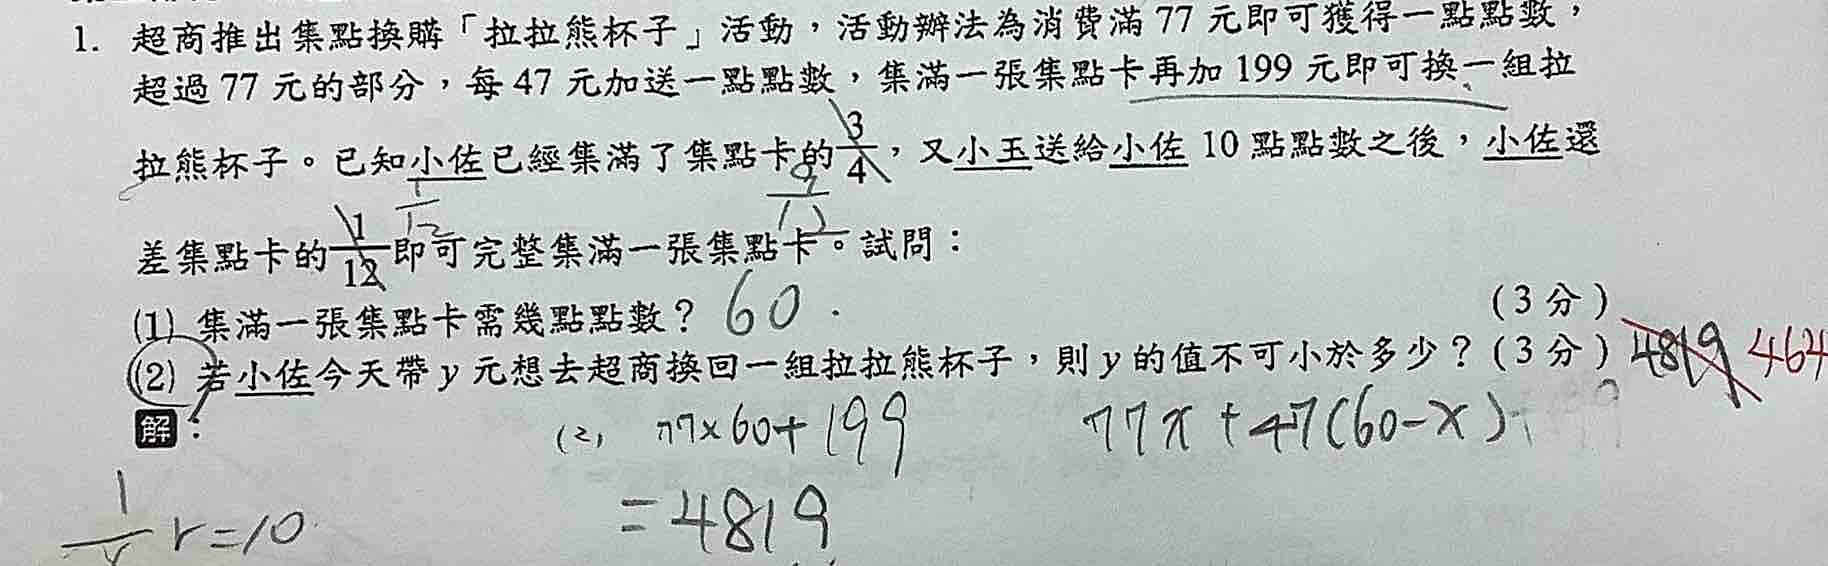 1. 超商推出集點換購「拉拉熊杯子」活動，活動辦法為消費滿 77 元即可獲得一點點數，
超過 77 元的部分，每 47 元加送一點點數，集滿一張集點卡再加 199 元即可換一組拉
拉熊杯子。已知小佐已經集滿了集點卡的 3/4，又小玉送給小佐 10 點點數之後，小佐還
9/12
差集點卡的 1/12 即可完整集滿一張集點卡。試問：
1/12
(1) 集滿一張集點卡需幾點點數？ 60 (3 分)
(2) 若小佐今天帶 y 元想去超商換回一組拉拉熊杯子，則 y 的值不可小於多少？(3 分) 4819 464
解：
(2) 77×60+199
77x+47(60-x)
=4819
r=10